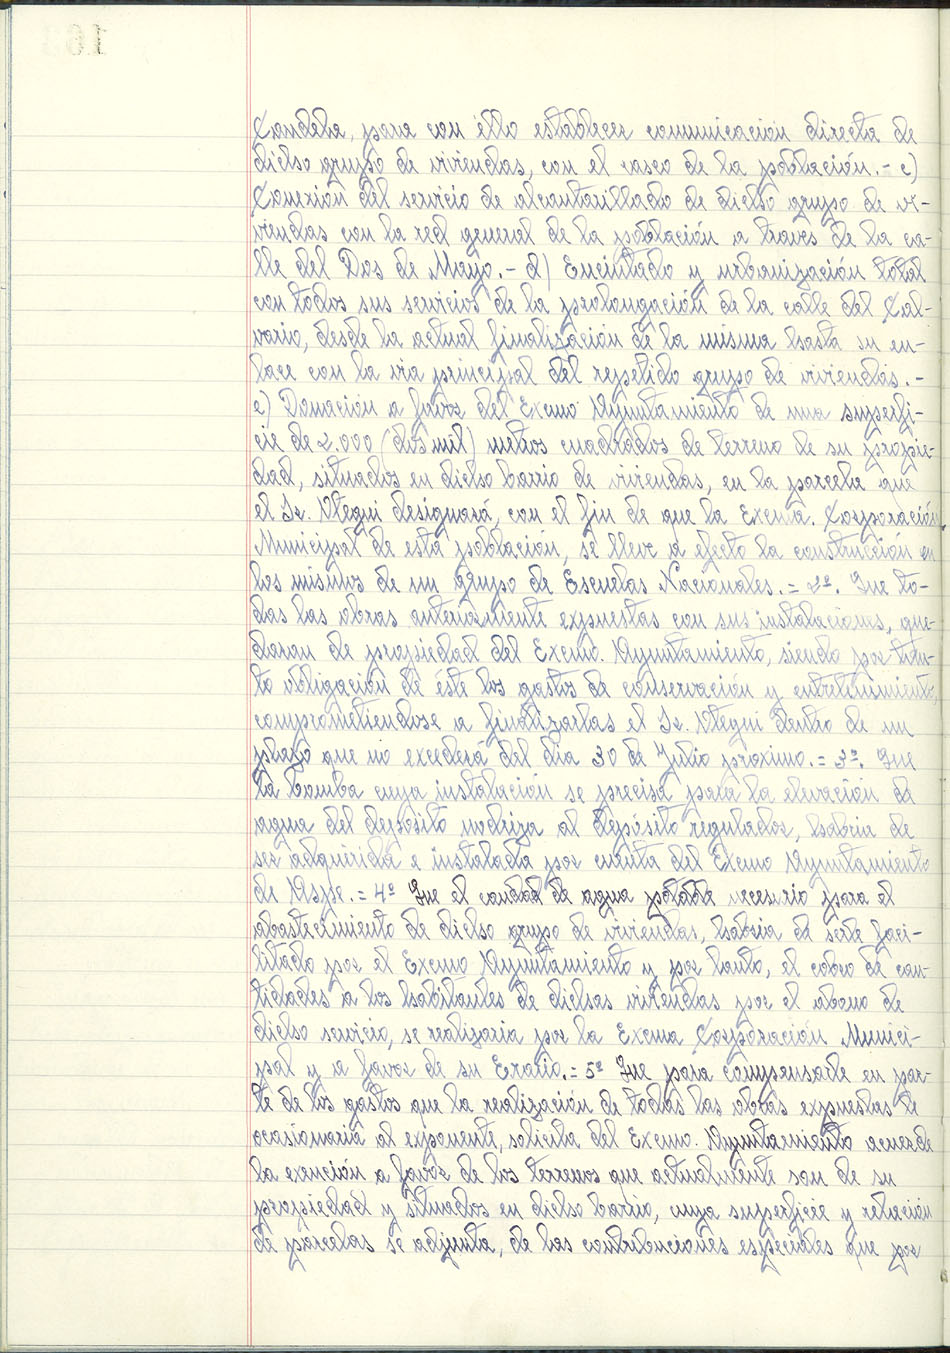 Candela, para con éllo establecer comunicación directa de
dicho grupo de viviendas, con el casco de la población.- c)
Conexión del servicio de alcantarillado de dicho grupo de vi-
viendas con la red general de la población a través de la ca-
lle del Dos de Mayo.- d) Encintado y urbanización total
con todos sus servicios de la prolongación de la calle del Cal-
vario, desde la actual finalización de la misma hasta su en-
lace con la via principal del repetido grupo de viviendas.-
e) Donación a favor del Excmo Ayuntamiento de una superfi-
cie de 2.000 (dos mil) metros cuadrados de terreno de su propie-
dad, situados en dicho barrio de viviendas, en la parcela que
el Sr. Alegui designará, con el fin de que la Excma. Corporación
Municipal de esta población, se lleve a efecto la construcción en
los mismos de un grupo de Escuelas Nacionales.= 2º. Que to-
das las obras anteriormente expuestas con sus instalaciones, que-
daran de propiedad del Excmo. Ayuntamiento, siendo por tan-
to obligación de éste los gastos de conservación y entretenimiento,
comprometiendose a finalizarlas el Sr. Alegui dentro de un
plazo que no excederá del dia 30 de Julio próximo.= 3º. Que
la bomba cuya instalación se precisa para la elevación de
agua del depósito nodriza al depósito regulador, habria de
ser adquirida e instalada por cuenta del Excmo Ayuntamiento
de Aspe.= 4º Que el caudal de agua potable necesario para el
abastecimiento de dicho grupo de viviendas, habria de serle faci-
litado por el Excmo Ayuntamiento y por tanto, el cobro de can-
tidades a los habitantes de dichas viviendas por el abono de
dicho servicio, se realizaria por la Excma Corporación Munici-
pal y a favor de su Erario.= 5º Que para compensarle en par-
te de los gastos que la realización de todas las obras expuestas le
ocasionaria al exponente, solicita del Excmo. Ayuntamiento acuerde
la exención a favor de los terrenos que actualmente son de su
propiedad y situados en dicho barrio, cuya superficie y relación
de parcelas se adjunta, de las contribuciones especiales que por